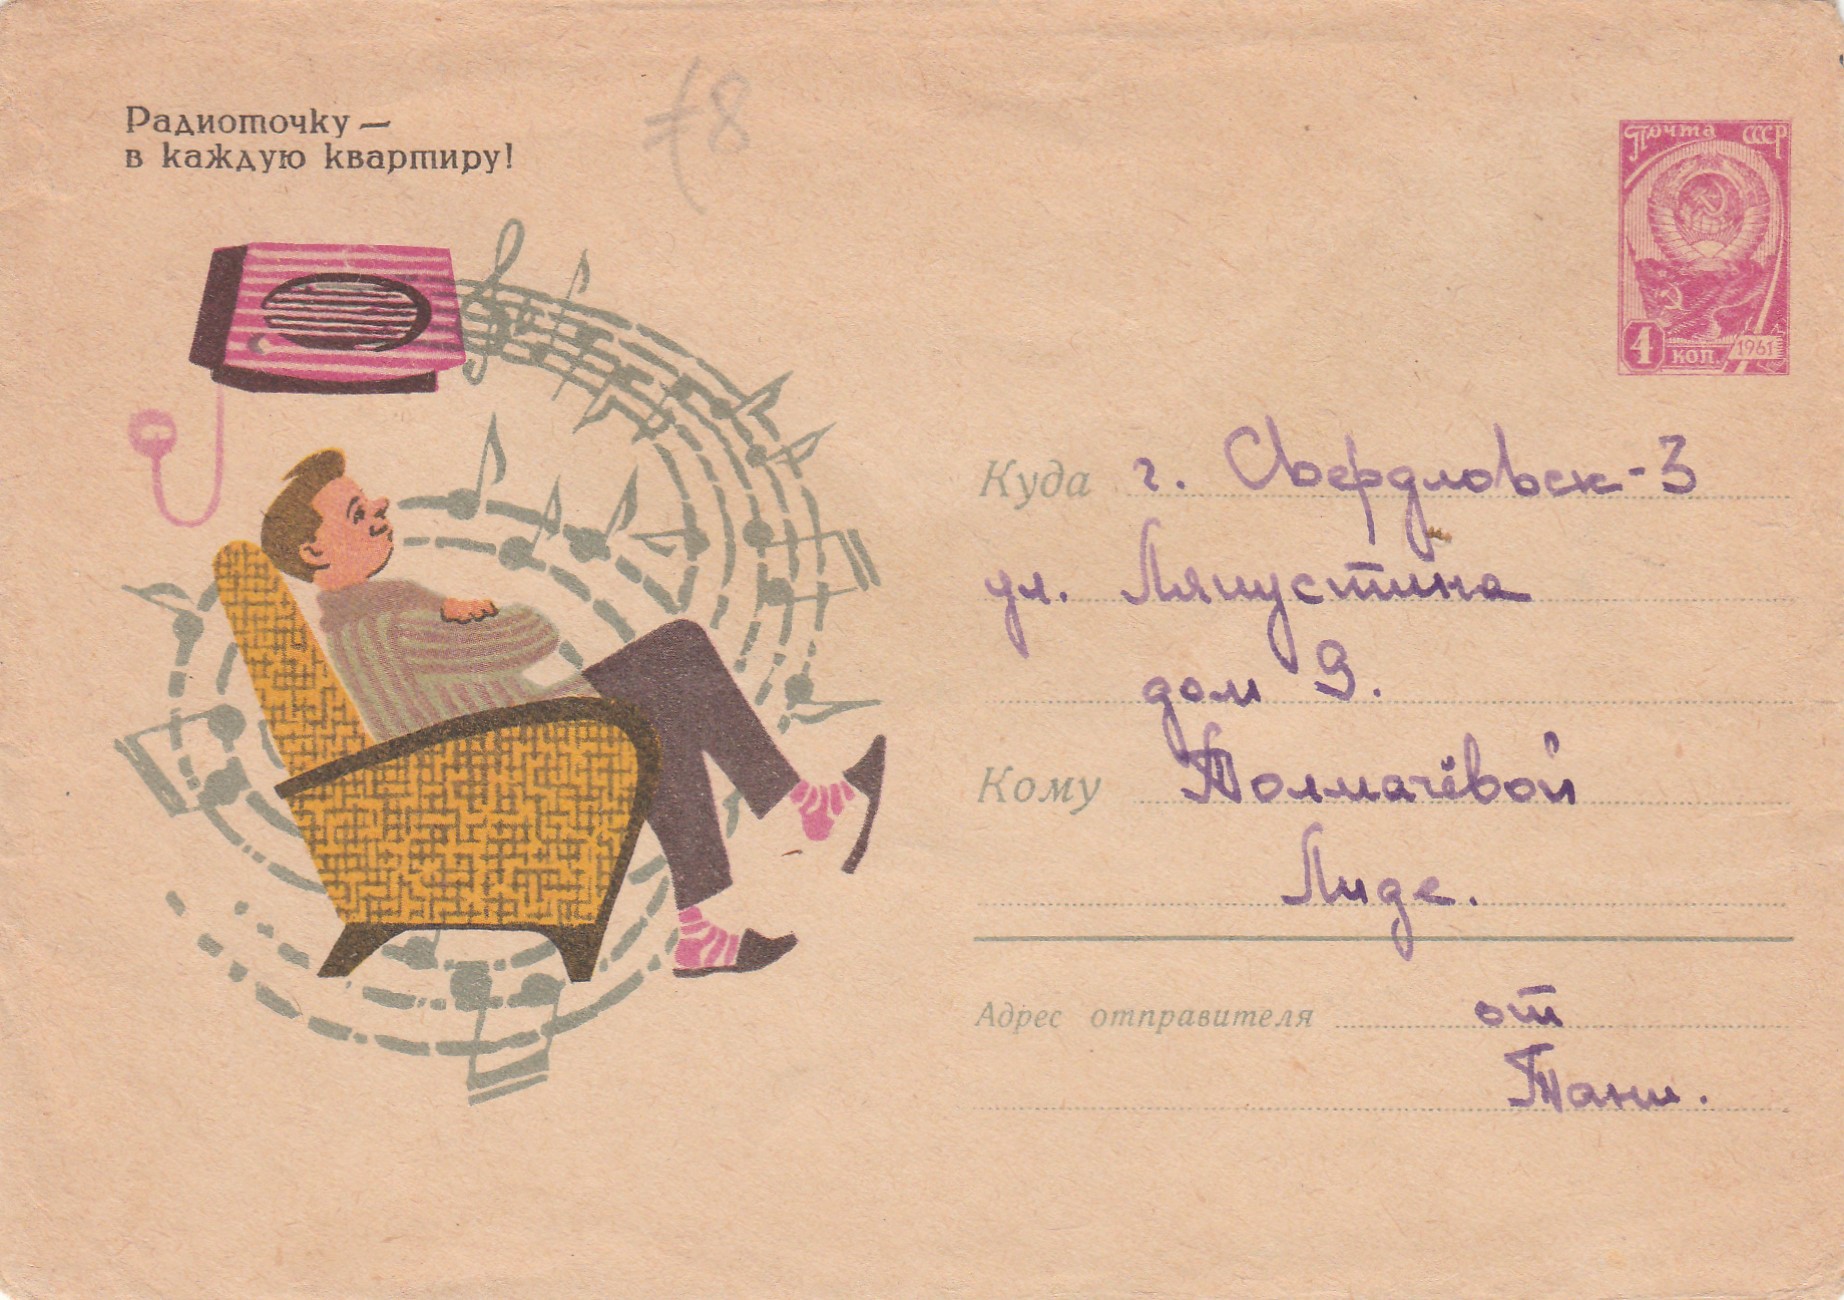 Радиоточку —
в каждую квартиру!
78
Почта СССР
4 коп. 1961
Куда г. Свердловск-3
ул. Ляпустина
дом 9.
Кому Толмачёвой
Лиде.
Адрес отправителя от
Тани.